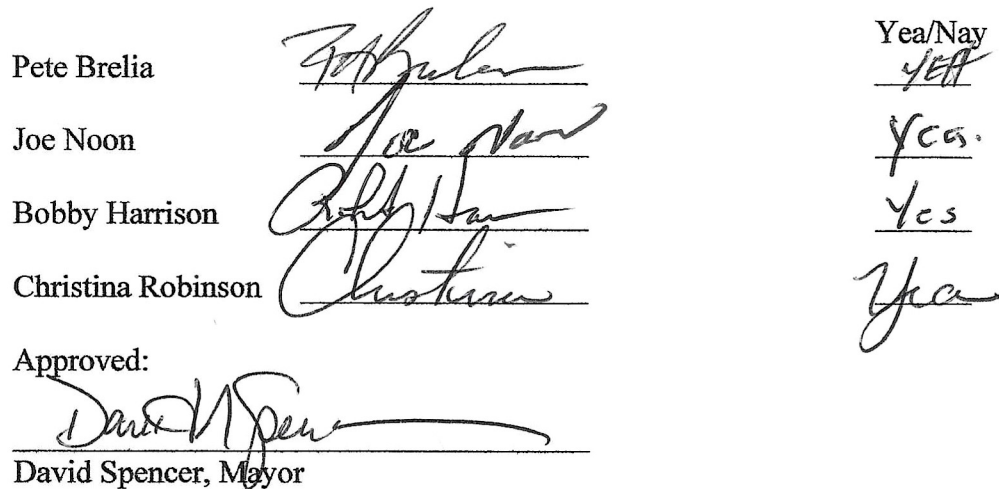 Yea/Nay
Pete Brelia YEA
Joe Noon Joe Noon Yea.
Bobby Harrison Yes
Christina Robinson Christina Yea
Approved:
David Spencer
David Spencer, Mayor